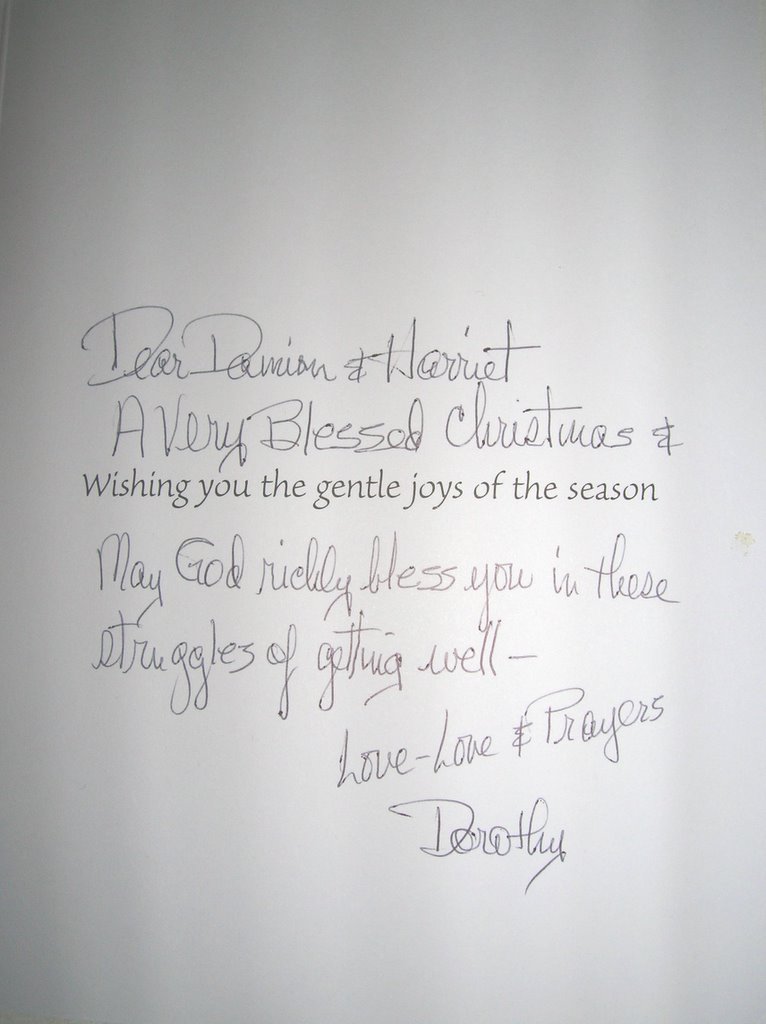 Dear Damian & Harriet
A Very Blessed Christmas &
Wishing you the gentle joys of the season
May God richly bless you in these
struggles of getting well -
Love - Love & Prayers
Dorothy